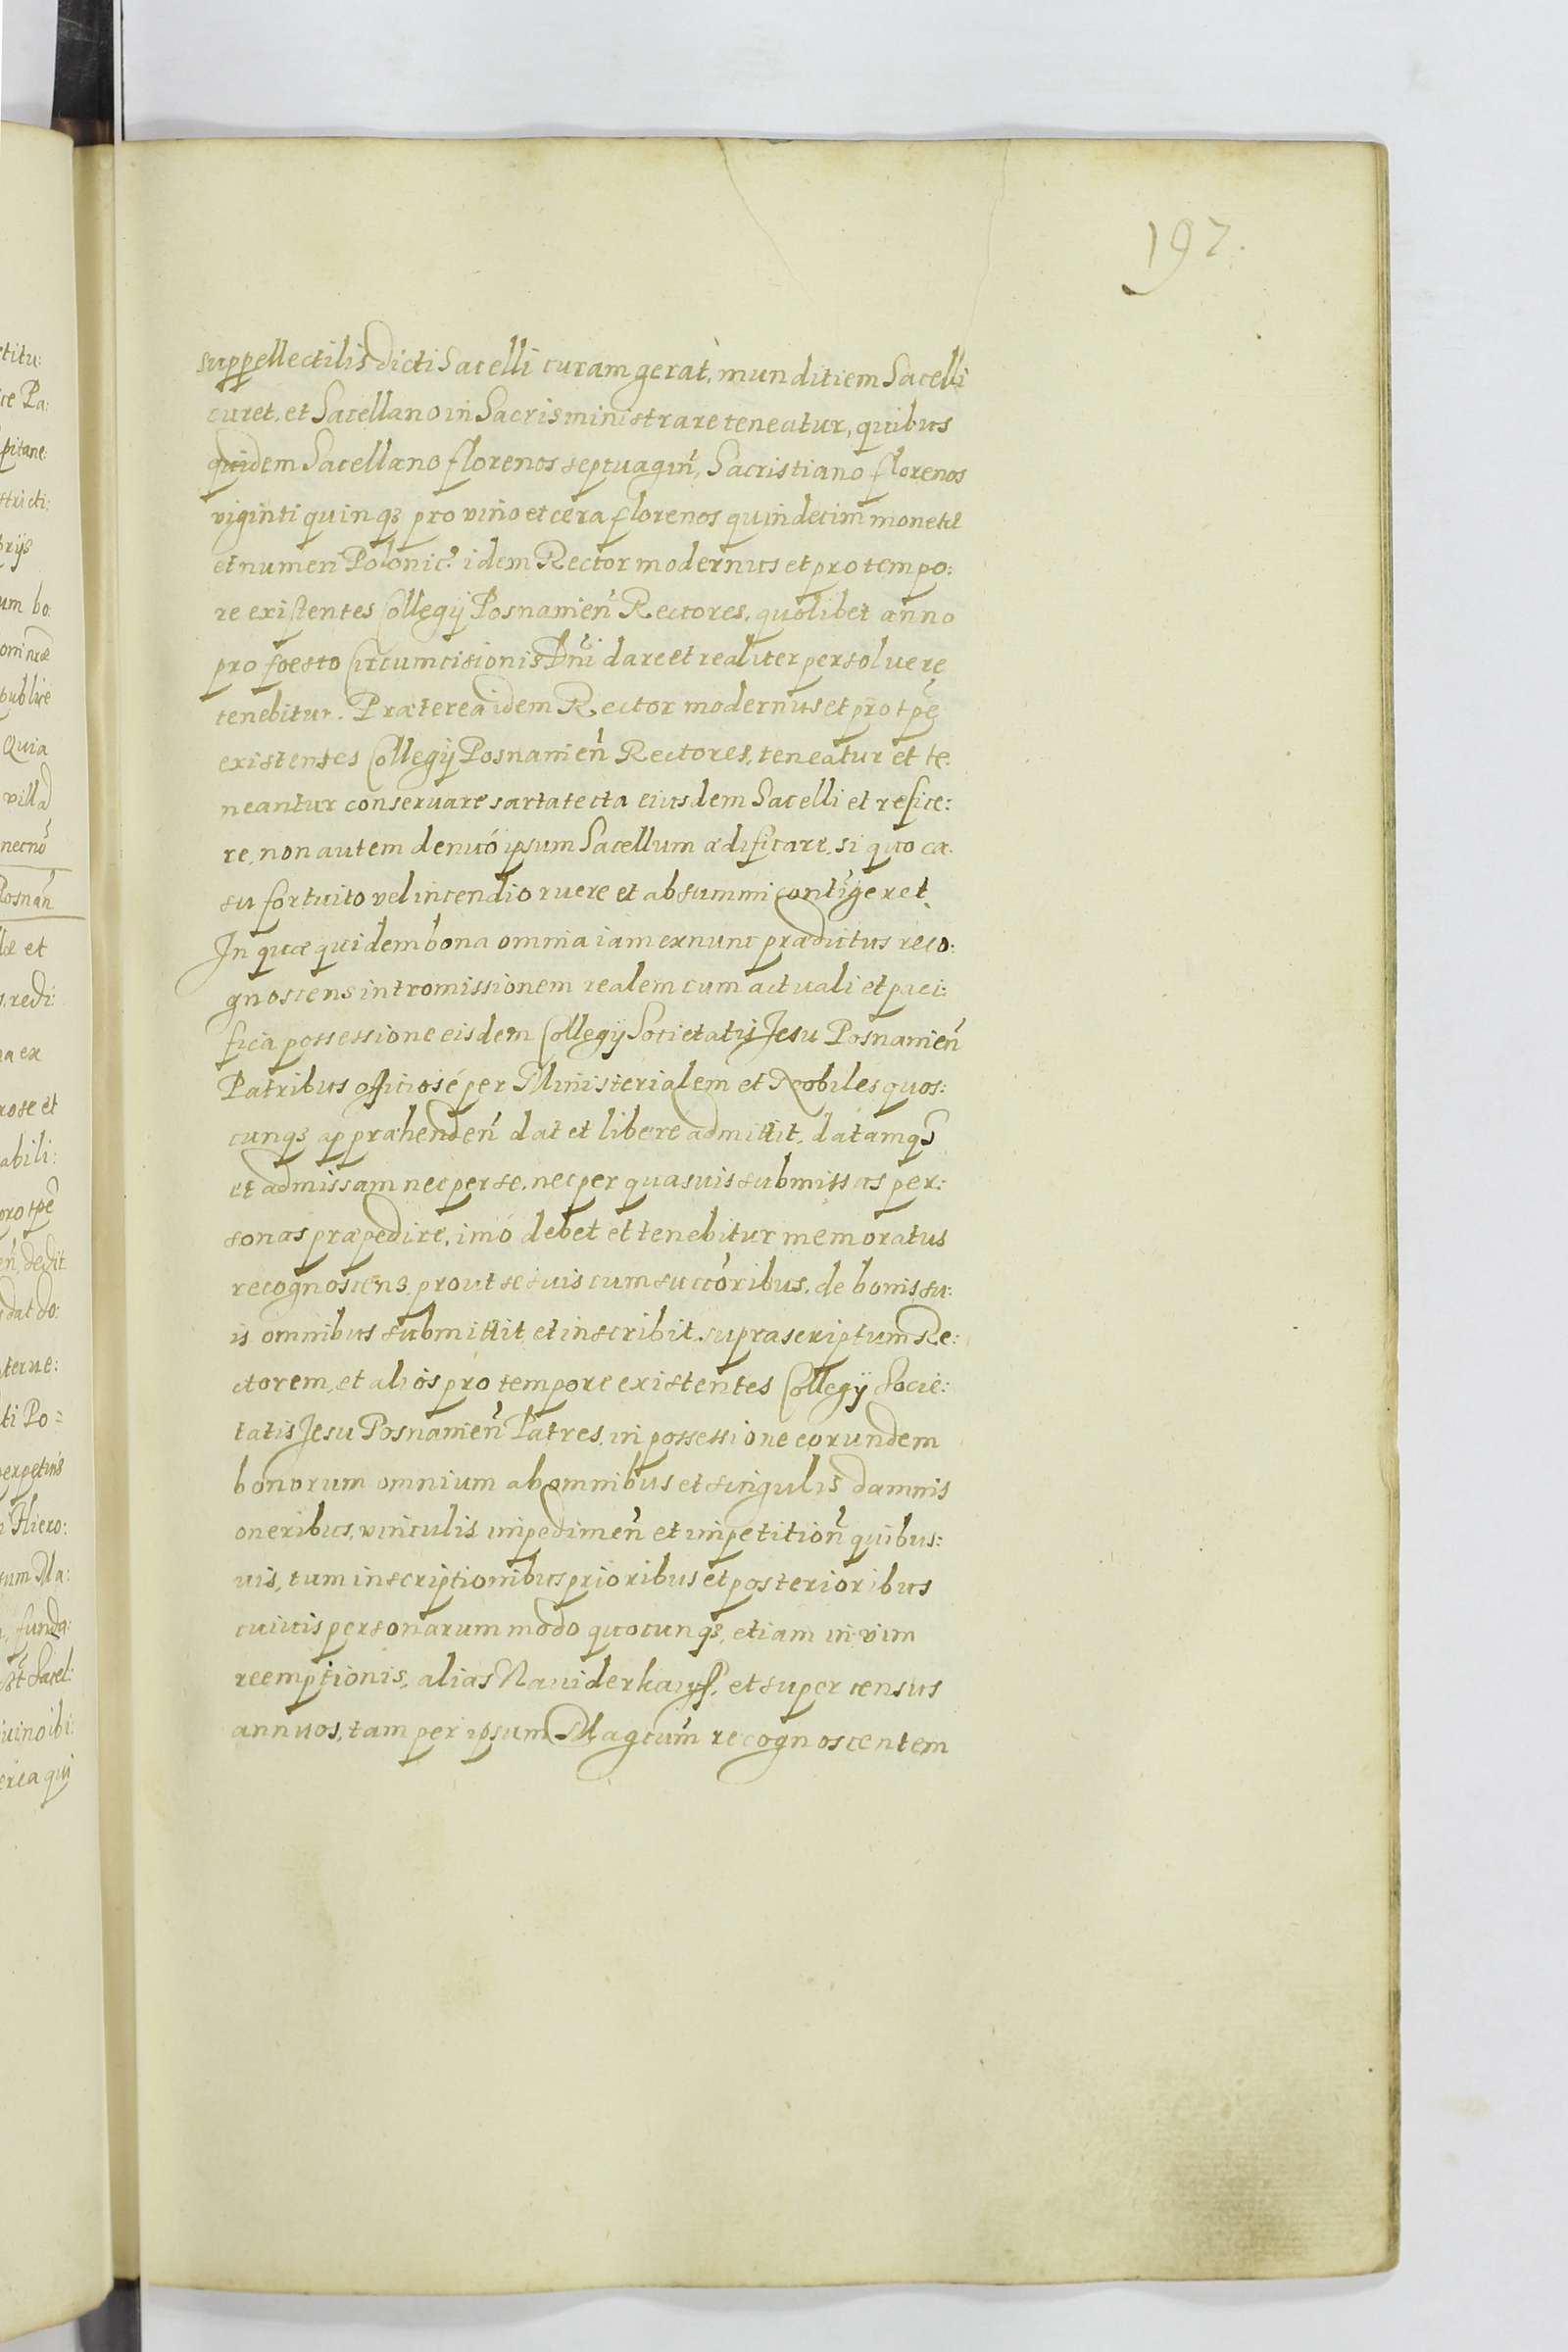 197.
suppellectilis dicti Sacelli curam gerat, munditiem Sacelli
curet, et Sacellano in Sacris ministrare teneatur, quibus
quidem Sacellano florenos septuagin̄, Sacristiano florenos
viginti quinqꝫ pro vino et cera florenos quindecim monetæ
et numeri Polonic: idem Rector modernus et pro tempo:
re existentes Collegij Posnanien̄ Rectores, quolibet anno
pro foesto Circumcisionis Dn̄i dare et realiter persoluere
tenebitur. Præterea idem Rector modernus et pro tpe
existentes Collegij Posnanien̄ Rectores, teneatur et te:
neantur conseruare sartatecta eiusdem Sacelli et refice:
re, non autem denuó ipsum Sacellum ædificare, si quo ca:
su fortuito vel incendio ruere et absummi contigeret.
In quæ quidem bona omnia iam ex nunc prædictus reco:
gnoscens intromissionem realem cum actuali et paci:
fica possessione eisdem Collegij Societatis Jesu Posnanien̄
Patribus officiosé per Ministerialem et Nobiles quos:
cunqꝫ appræhenden̄ dat et liberé admittit, datamqꝫ
et admissam nec per se, nec per quasuis submissas per:
sonas præpedire, imó debet et tenebitur memoratus
recognoscens, prout se suis cum succōribus, de bonis su:
is omnibus submittit et inscribit, suprascriptum Re:
ctorem, et alios pro tempore existentes Collegij Socie:
tatis Jesu Posnanien̄ Patres, in possessione eorundem
bonorum omnium ab omnibus et singulis damnis
oneribus, vinculis impedimen̄ et impetition̄ quibus:
uis, tum inscriptionibus prioribus et posterioribus
cuiuis personarum modo quocunqꝫ, etiam in vim
reemptionis, alias Na viderkauff, et super census
annuos, tam per ipsum Magcum̄ recognoscentem
etitu:
ce Pa:
pitane
tricti:
orijs
um bo:
publice
Quia
villa
necno
Posnan̄
læ et
redi:
na ex
rose et
abili:
pro tpe
en̄, dedit
dat do:
terue:
ti Po=
perpetuis
Hiero:
sum Ma:
funda:
Sacel:
uino ibi:
erea qui